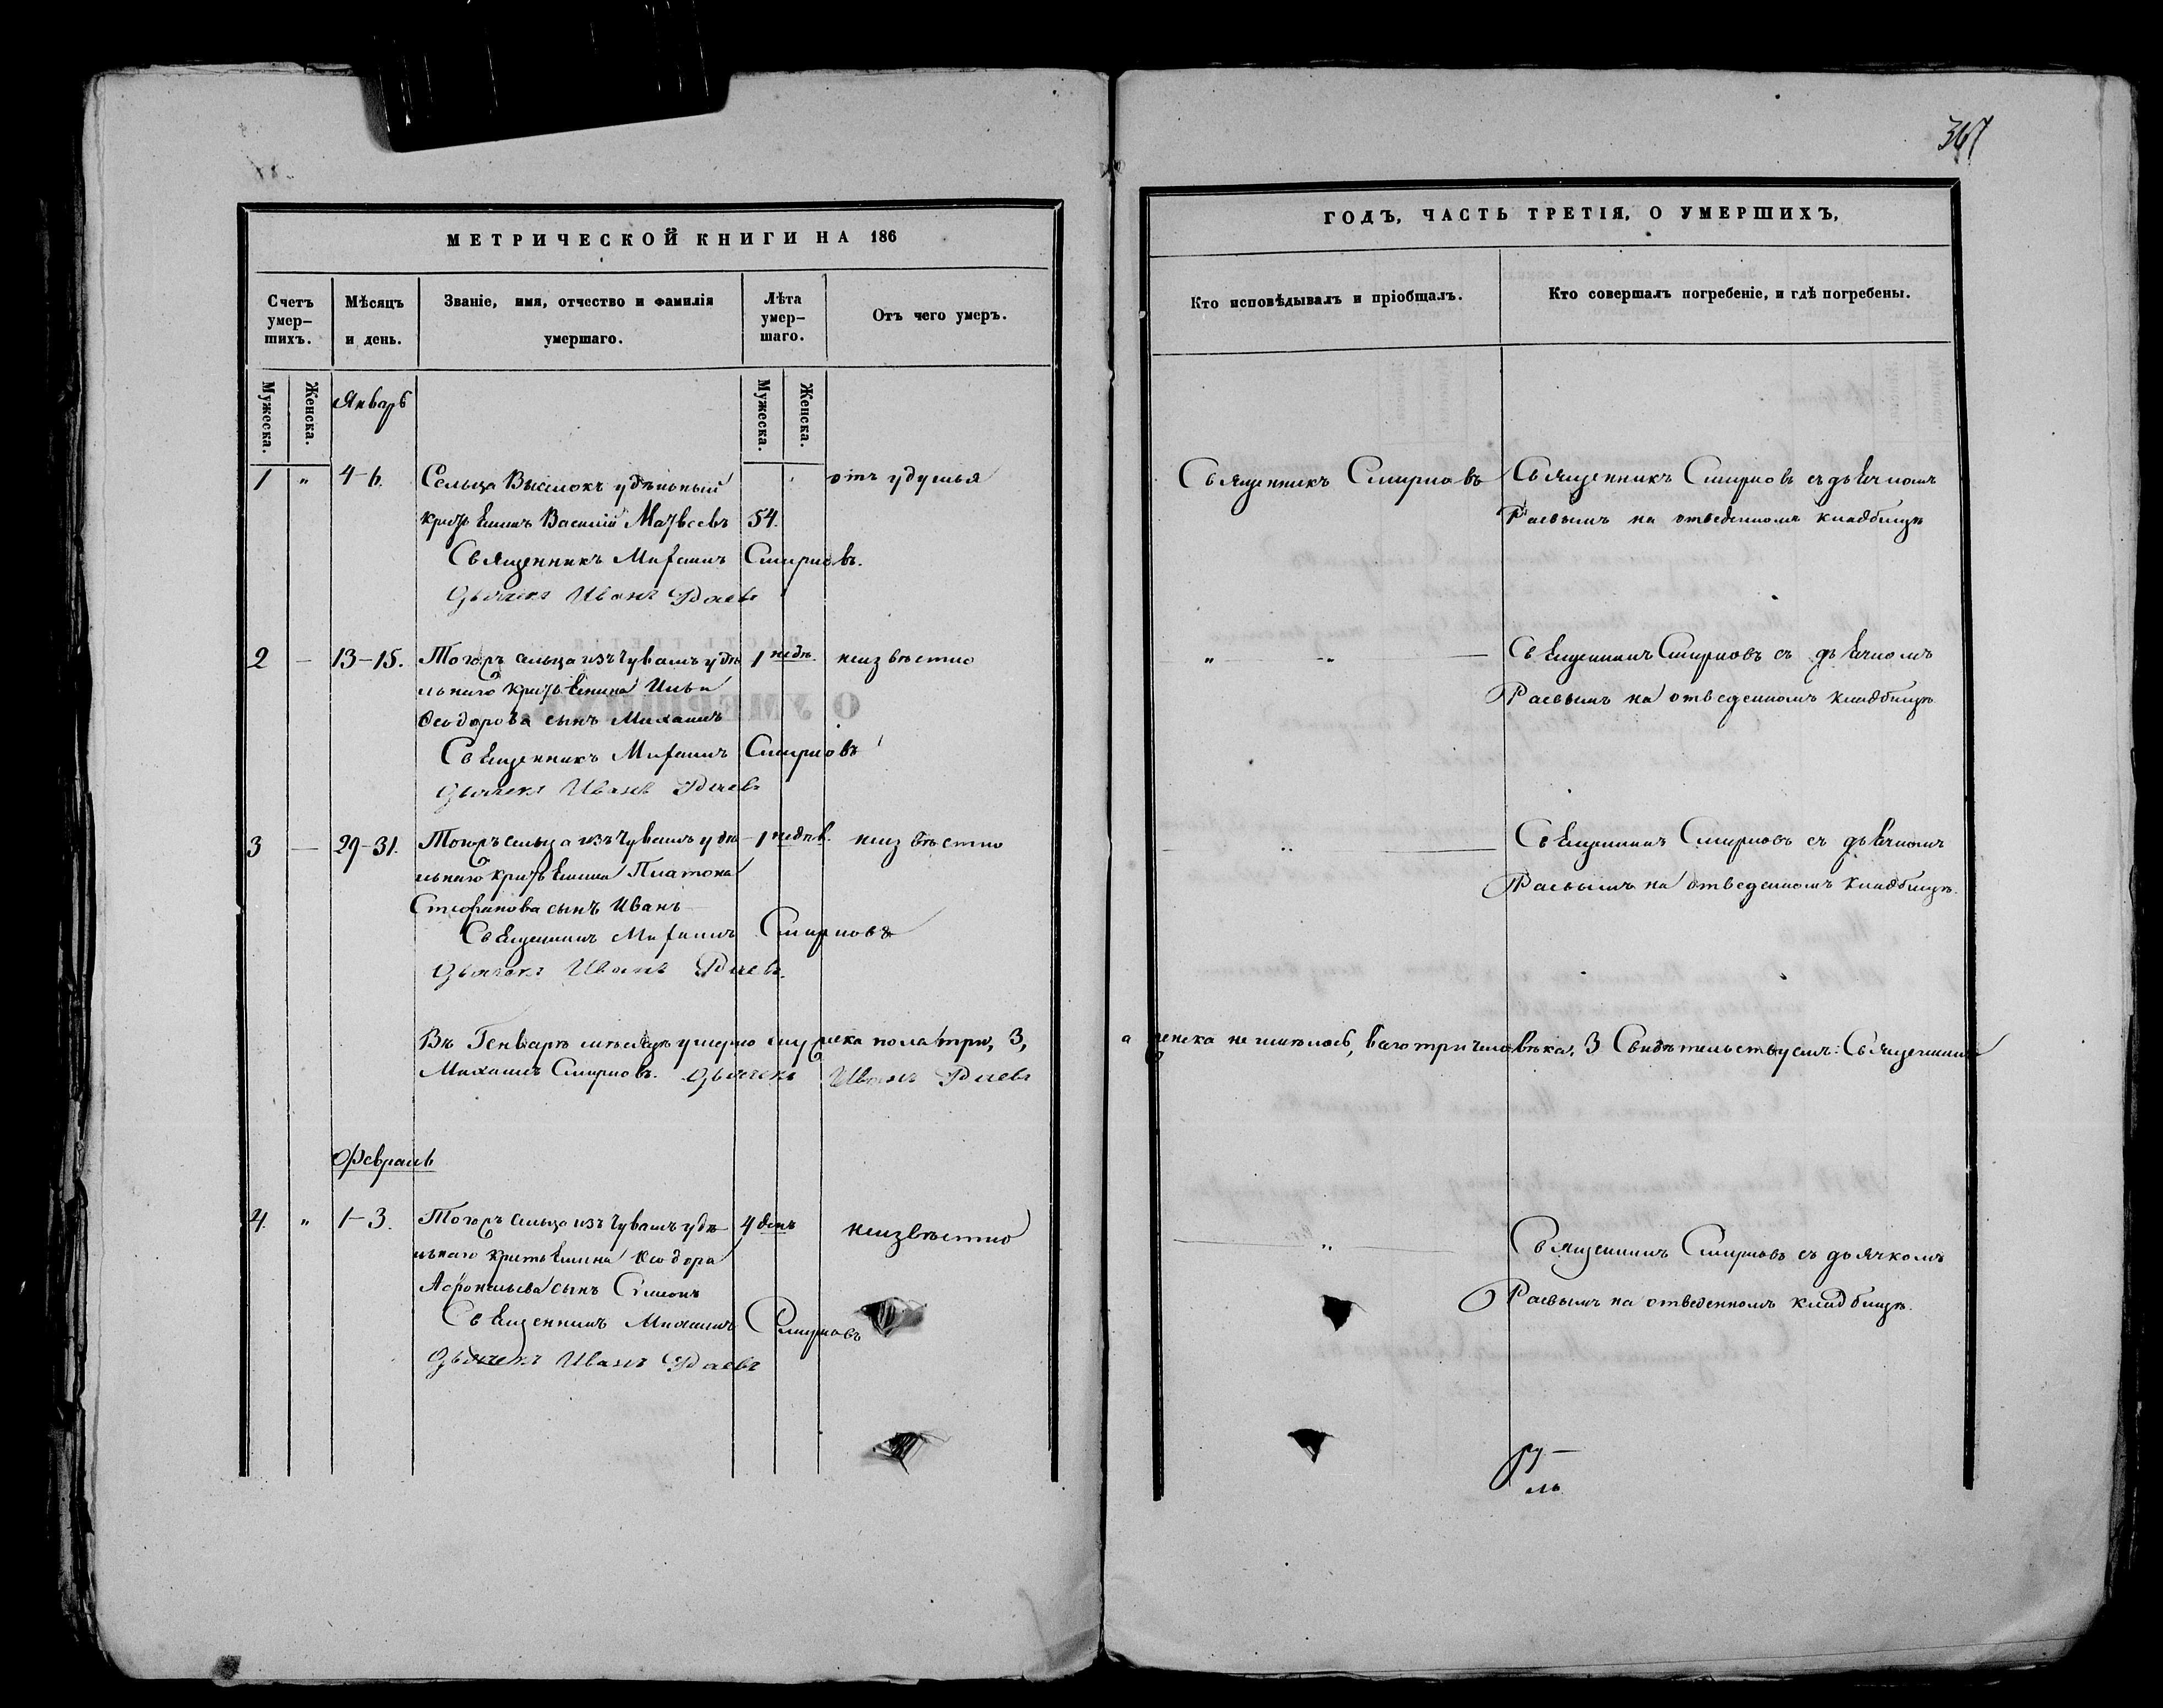 367
МЕТРИЧЕСКОЙ КНИГИ НА 186
Счетъ умер-шихъ.
Мѣсяцъ и день.
Званіе, имя, отчество и фамилія умершаго.
Лѣта умер-шаго.
Отъ чего умеръ.
Мужеска.
Женска.
Мужеска.
Женска.
Январь
1 " 4-6. Сельца Выселокъ удѣльный отъ удушья
крестьянинъ Василій Матвѣевъ 54.
Священникъ Михаилъ Смирновъ.
Дьячекъ Иванъ Раевъ
2 — 13-15. Тогожъ сельца изъ Чувашъ удѣ 1 недѣ. неизвѣстно
льнаго крестьянина Ильи
Ѳеодорова сынъ Михаилъ
Священникъ Михаилъ Смирновъ
Дьячекъ Иванъ Раевъ
3 — 29-31. Тогожъ сельца изъ Чувашъ удѣ 1 недѣв. неизвѣстно
льнаго крестьянина Платона
Стефанова сынъ Иванъ
Священникъ Михаилъ Смирновъ
Дьячекъ Иванъ Раевъ.
Въ Генварѣ мѣсяцѣ умерло мужеска пола три, 3,
Михаилъ Смирновъ. Дьячекъ Иванъ Раевъ
Февраль
4. " 1-3. Тогожъ сельца изъ Чувашъ удѣ 4 день неизвѣстно
льнаго крестьянина Ѳеодора
Афонасьева сынъ Симеонъ
Священникъ Михаилъ Смирновъ
Дьячекъ Иванъ Раевъ
ГОДЪ, ЧАСТЬ ТРЕТІЯ, О УМЕРШИХЪ,
Кто исповѣдывалъ и пріобщалъ.
Кто совершалъ погребеніе, и гдѣ погребены.
Священникъ Смирновъ Священникъ Смирновъ съ дьячкомъ
Раевымъ на отведенномъ кладбищѣ
" " — Священникъ Смирновъ съ дьячкомъ
Раевымъ на отведенномъ кладбищѣ
— " — Священникъ Смирновъ съ дьячкомъ
Раевымъ на отведенномъ кладбищѣ.
а женска не имѣлось, всего три человѣка, 3 Свидѣтельствуемъ: Священникъ
— " — Священникъ Смирновъ съ дьячкомъ
Раевымъ на отведенномъ кладбищѣ.